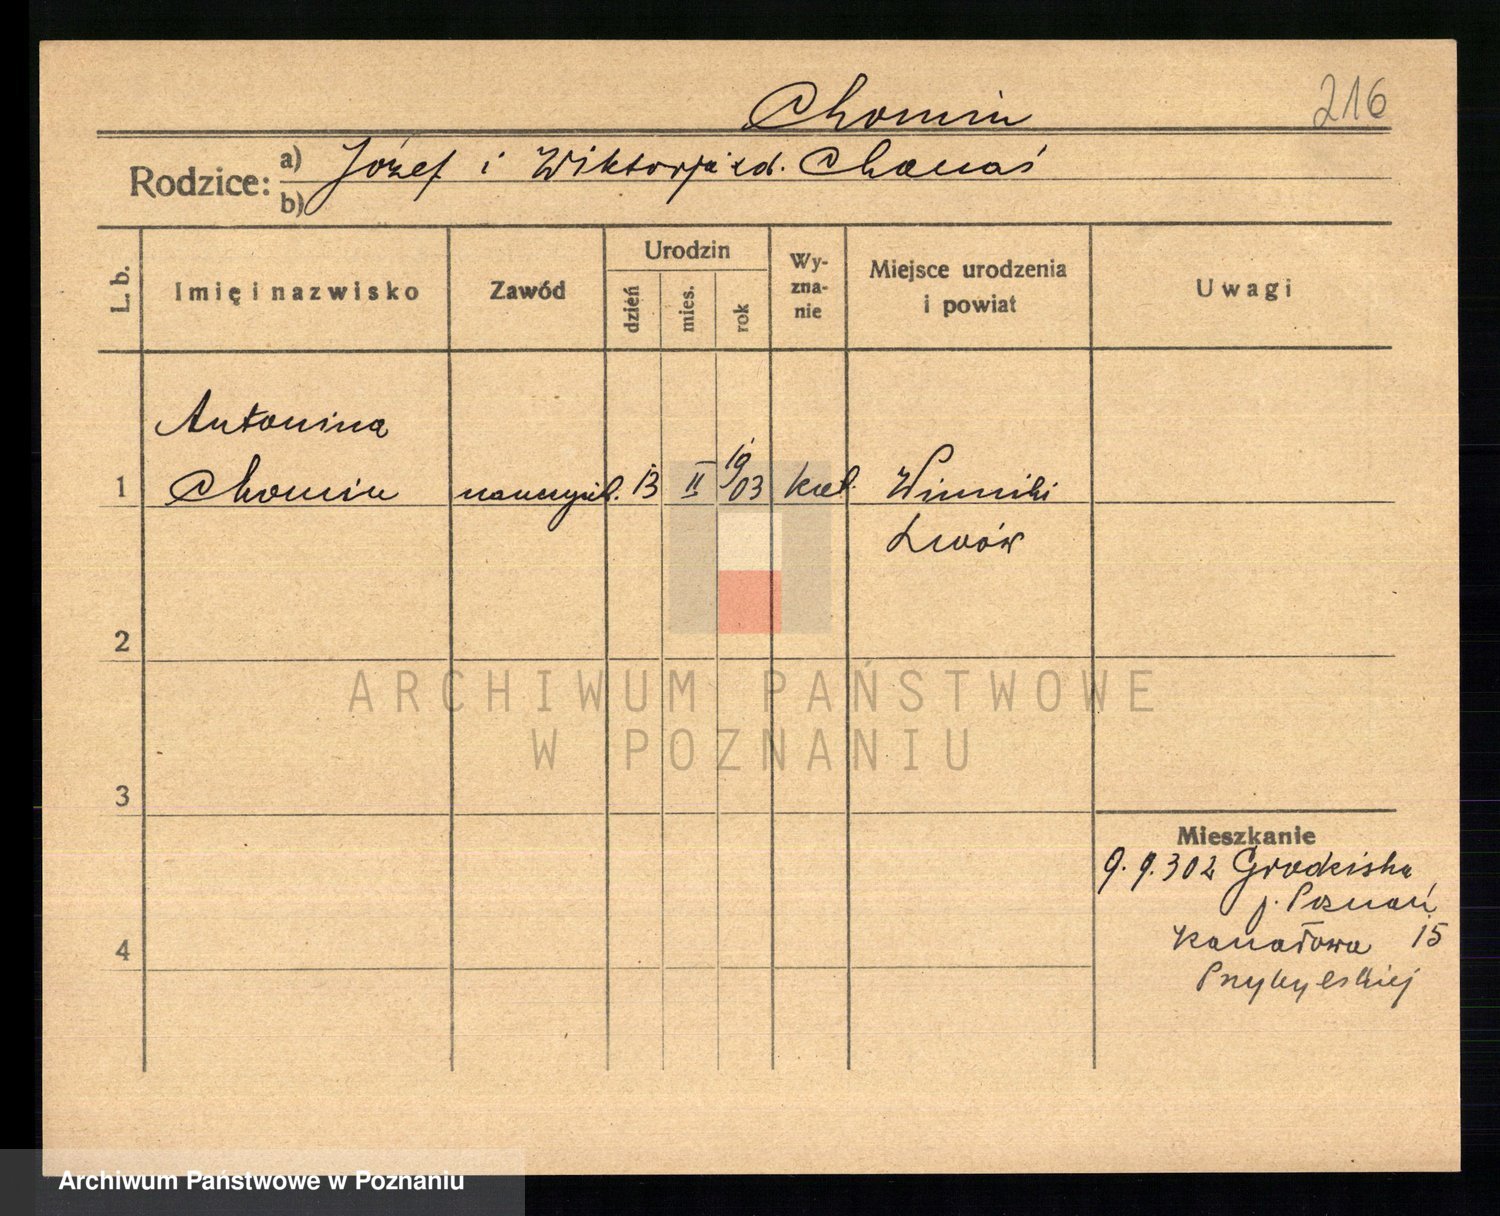 216
Chomin
Rodzice: a) Józef i Wiktorja zd. Chanaś
b)
L. b.
Imię i nazwisko
Zawód
Urodzin
dzień
mies.
rok
Wy-
zna-
nie
Miejsce urodzenia
i powiat
Uwagi
Antonina
1 Chomin nauczyciel. 13 II 1903 kat. Winniki
Lwów
2
3
4
Mieszkanie
9.9.302 Grodziska
p. Poznań
Kanałowa 15
Przybylskiej
ARCHIWUM PAŃSTWOWE
W POZNANIU
Archiwum Państwowe w Poznaniu